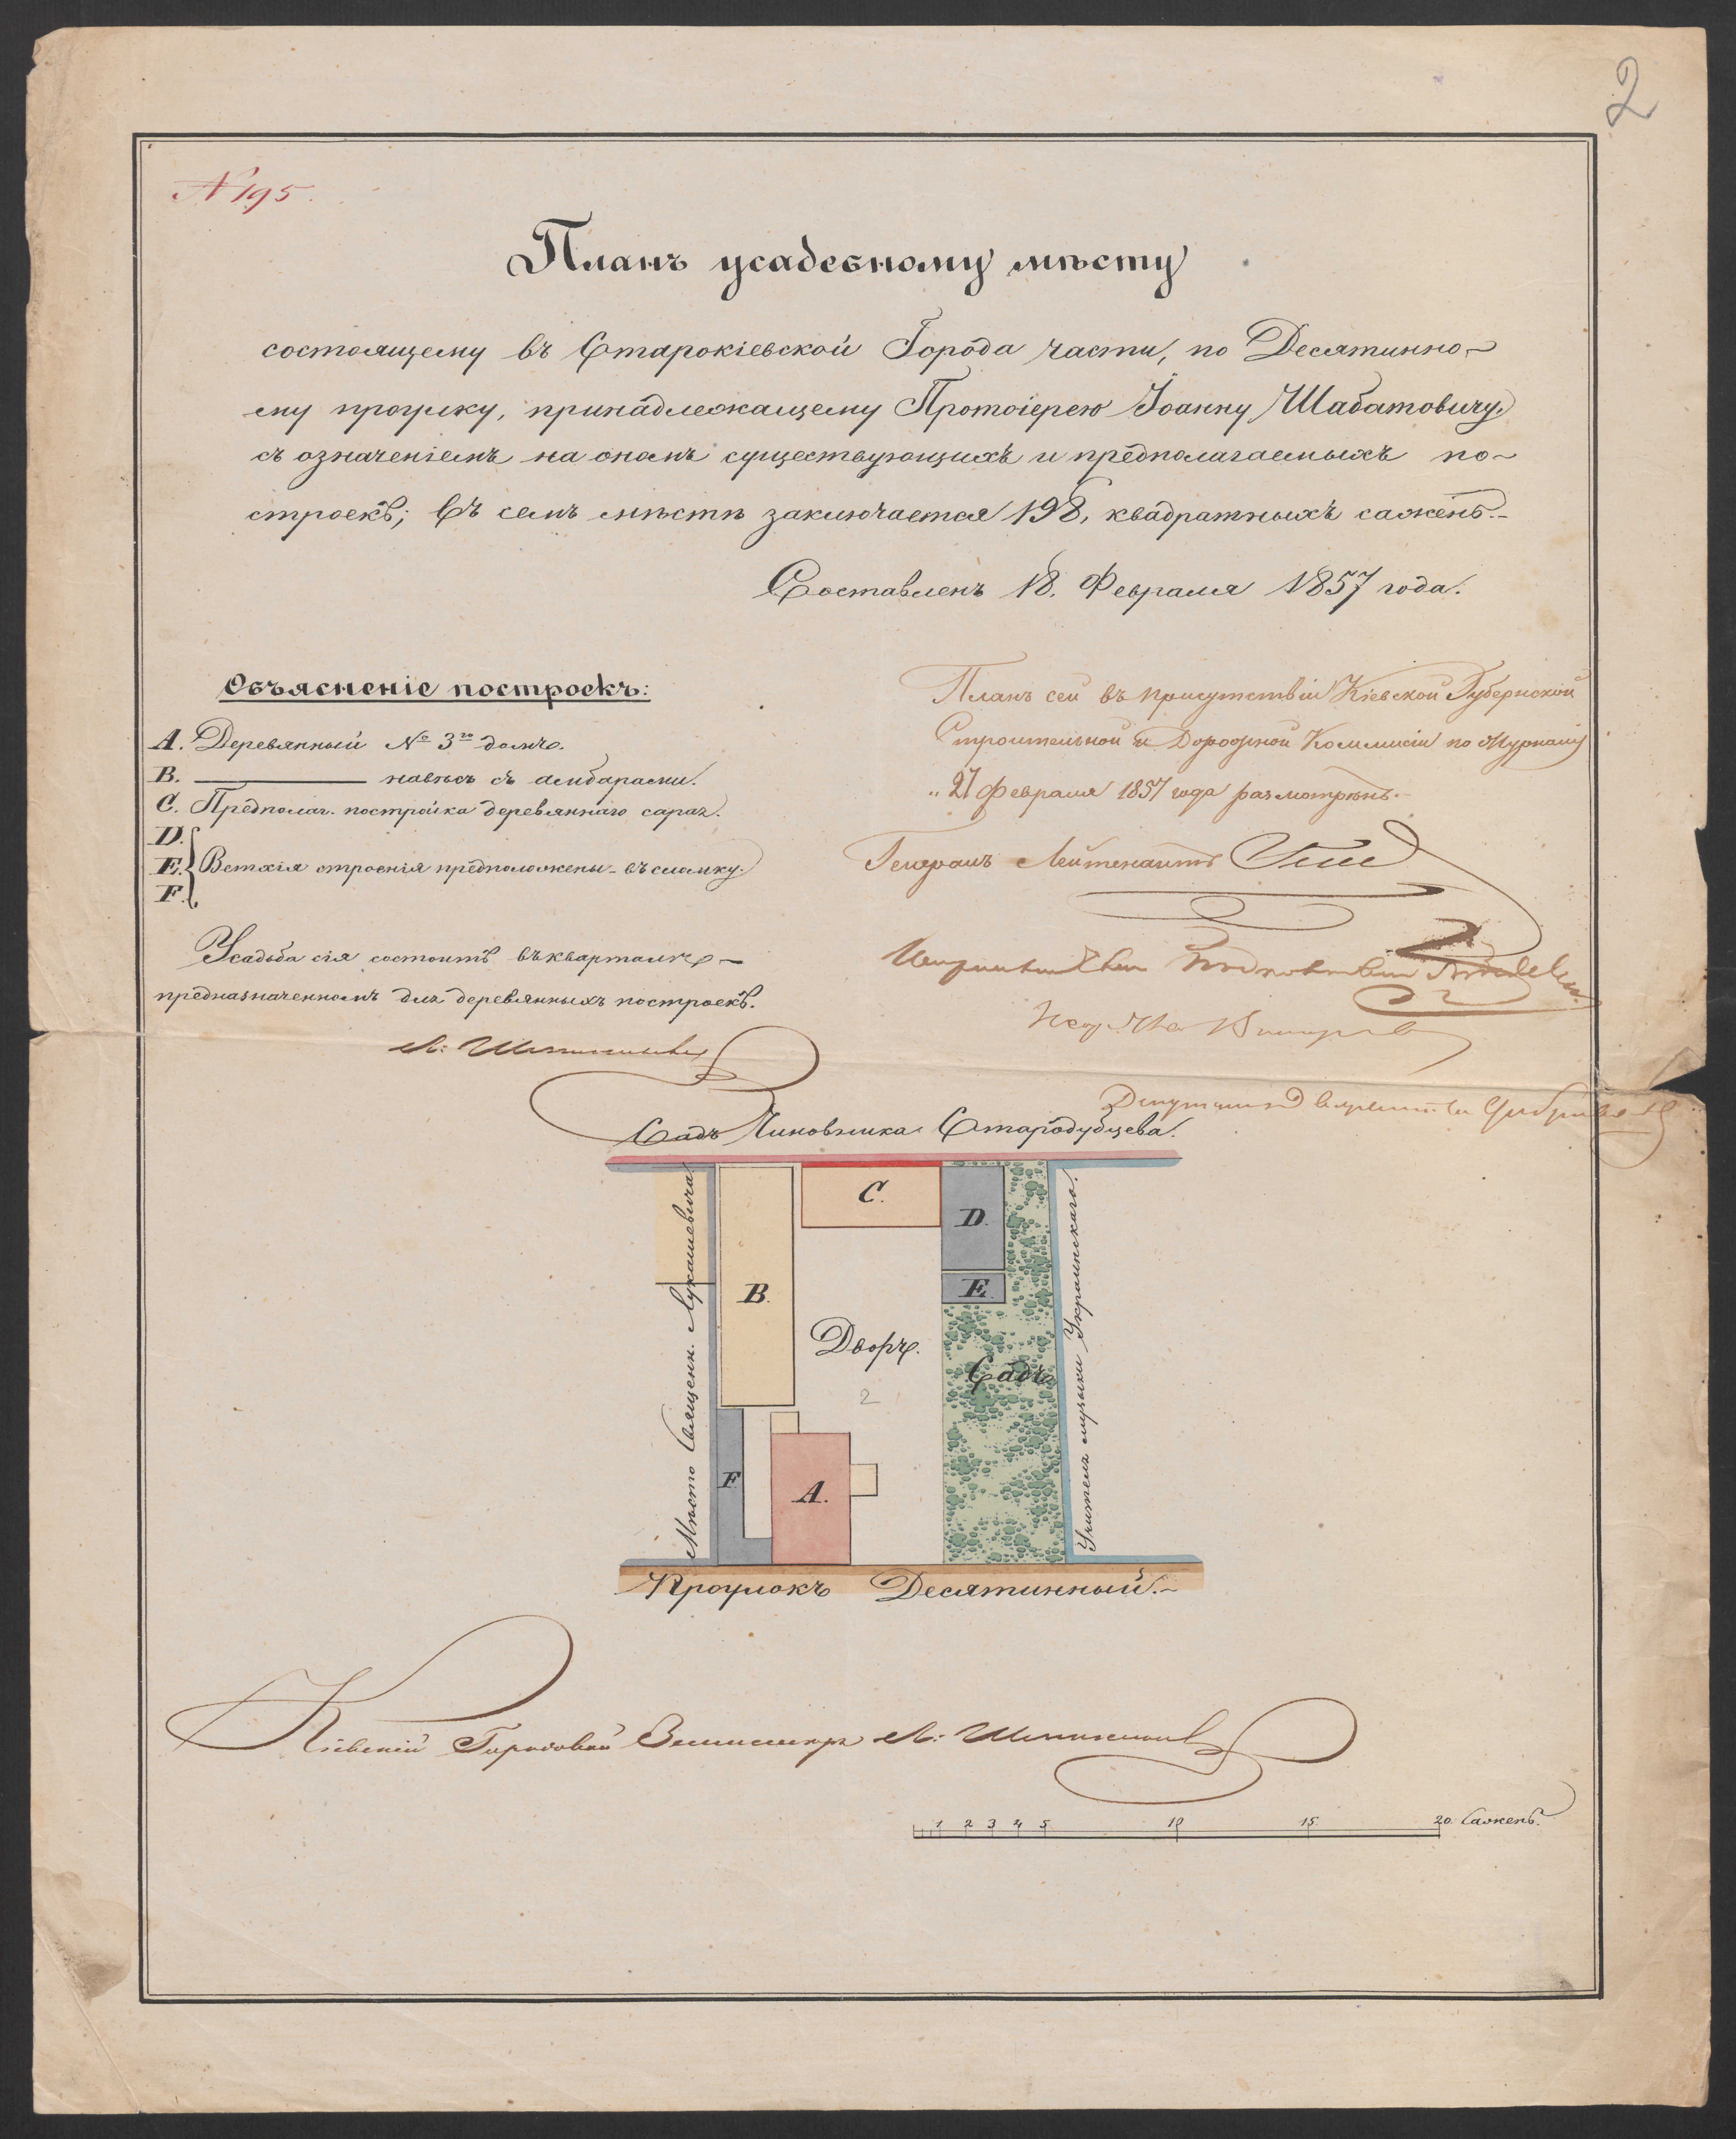 2
N 195.
Планъ усадебному мѣсту
состоящему въ Старокіевской Города части, по Десятинно-
му проулку, принадлежащему Протоіерею Іоанну Шабатовичу,
съ означеніемъ на ономъ существующихъ и предполагаемыхъ по-
строекъ; Въ семъ мѣстѣ заключается 198, квадратныхъ сажень.-
Составленъ 18. Февраля 1857 года.
Объясненіе построекъ:
A. Деревянный № 3го домъ.
B. ——— навѣсъ съ амбарами.
C. Предполаг. постройка деревяннаго сарая.
D.
E. Ветхія строенія предположены въ сломку.
F.
Усадьба сія состоитъ въ кварталѣ,-
предназначенномъ для деревянныхъ построекъ.
Планъ сей въ присутствіи Кіевской Губернской
Строительной и Дорожной Коммисіи по Журналу
" 27 Февраля 1857 года разсмотрѣнъ.-
Генералъ Лейтенантъ
Садъ Чиновника Стародубцева.
Мѣсто Священ. Лукашевича
B.
C.
D.
E.
Дворъ.
2
Садъ
F
A.
Учителя музыки Украинскаго.
Проулокъ Десятинный.-
Кіевскій Городовой Землемѣръ
1 2 3 4 5 10 15 20 Сажень.